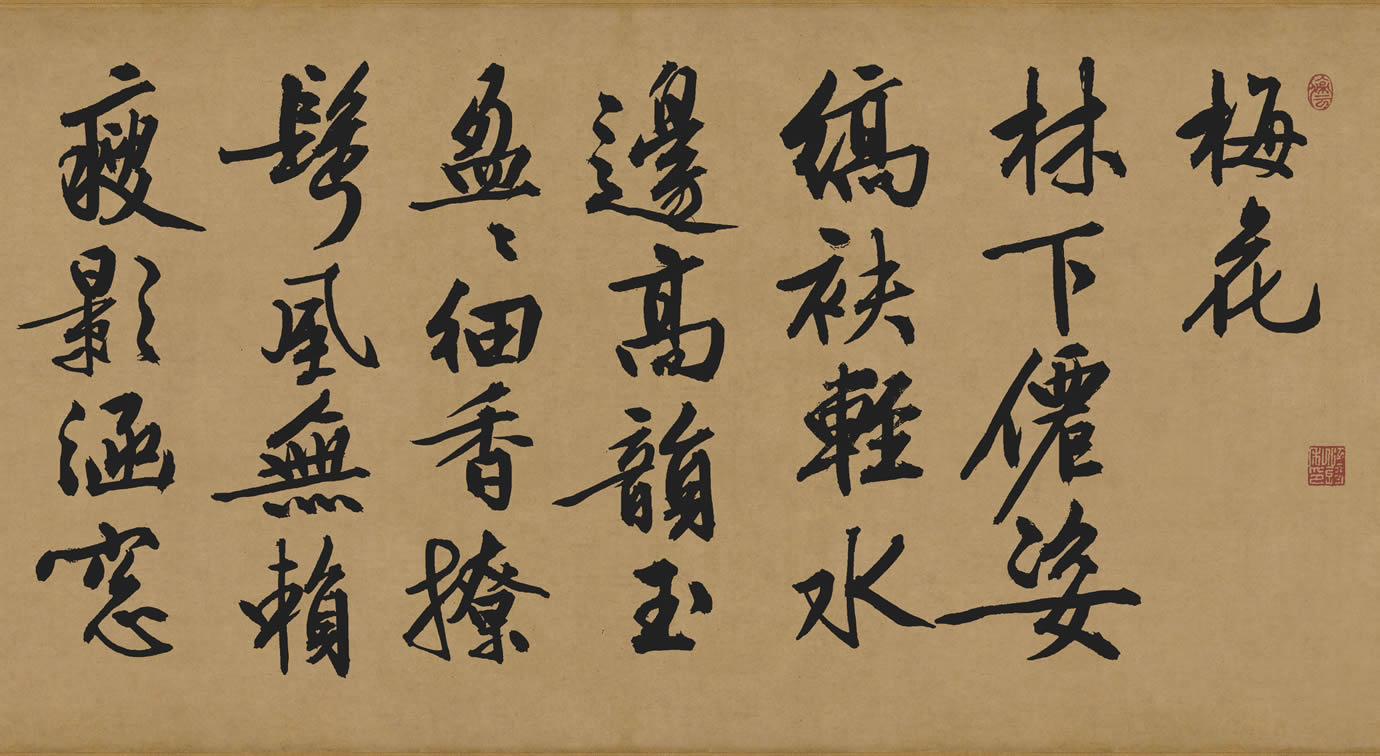 梅花
林下僊姿
縞袂輕水
邊高韻玉
盈〻細香撩
鬢風無賴
瘦影涵窓